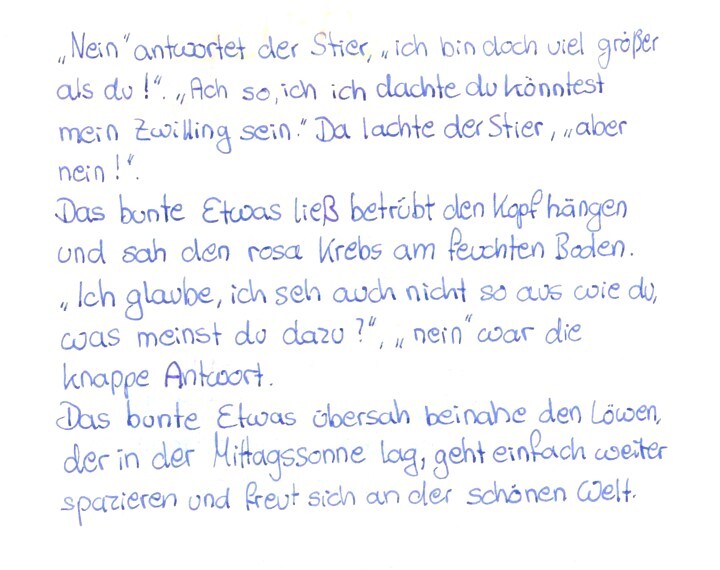 „Nein“ antwortet der Stier, „ich bin doch viel größer
als du!“. „Ach so, ich ich dachte du könntest
mein Zwilling sein.“ Da lachte der Stier, „aber
nein!“.
Das bunte Etwas ließ betrübt den Kopf hängen
und sah den rosa Krebs am feuchten Boden.
„Ich glaube, ich seh auch nicht so aus wie du,
was meinst du dazu?“, „nein“ war die
knappe Antwort.
Das bunte Etwas übersah beinahe den Löwen,
der in der Mittagssonne lag, geht einfach weiter
spazieren und freut sich an der schönen Welt.